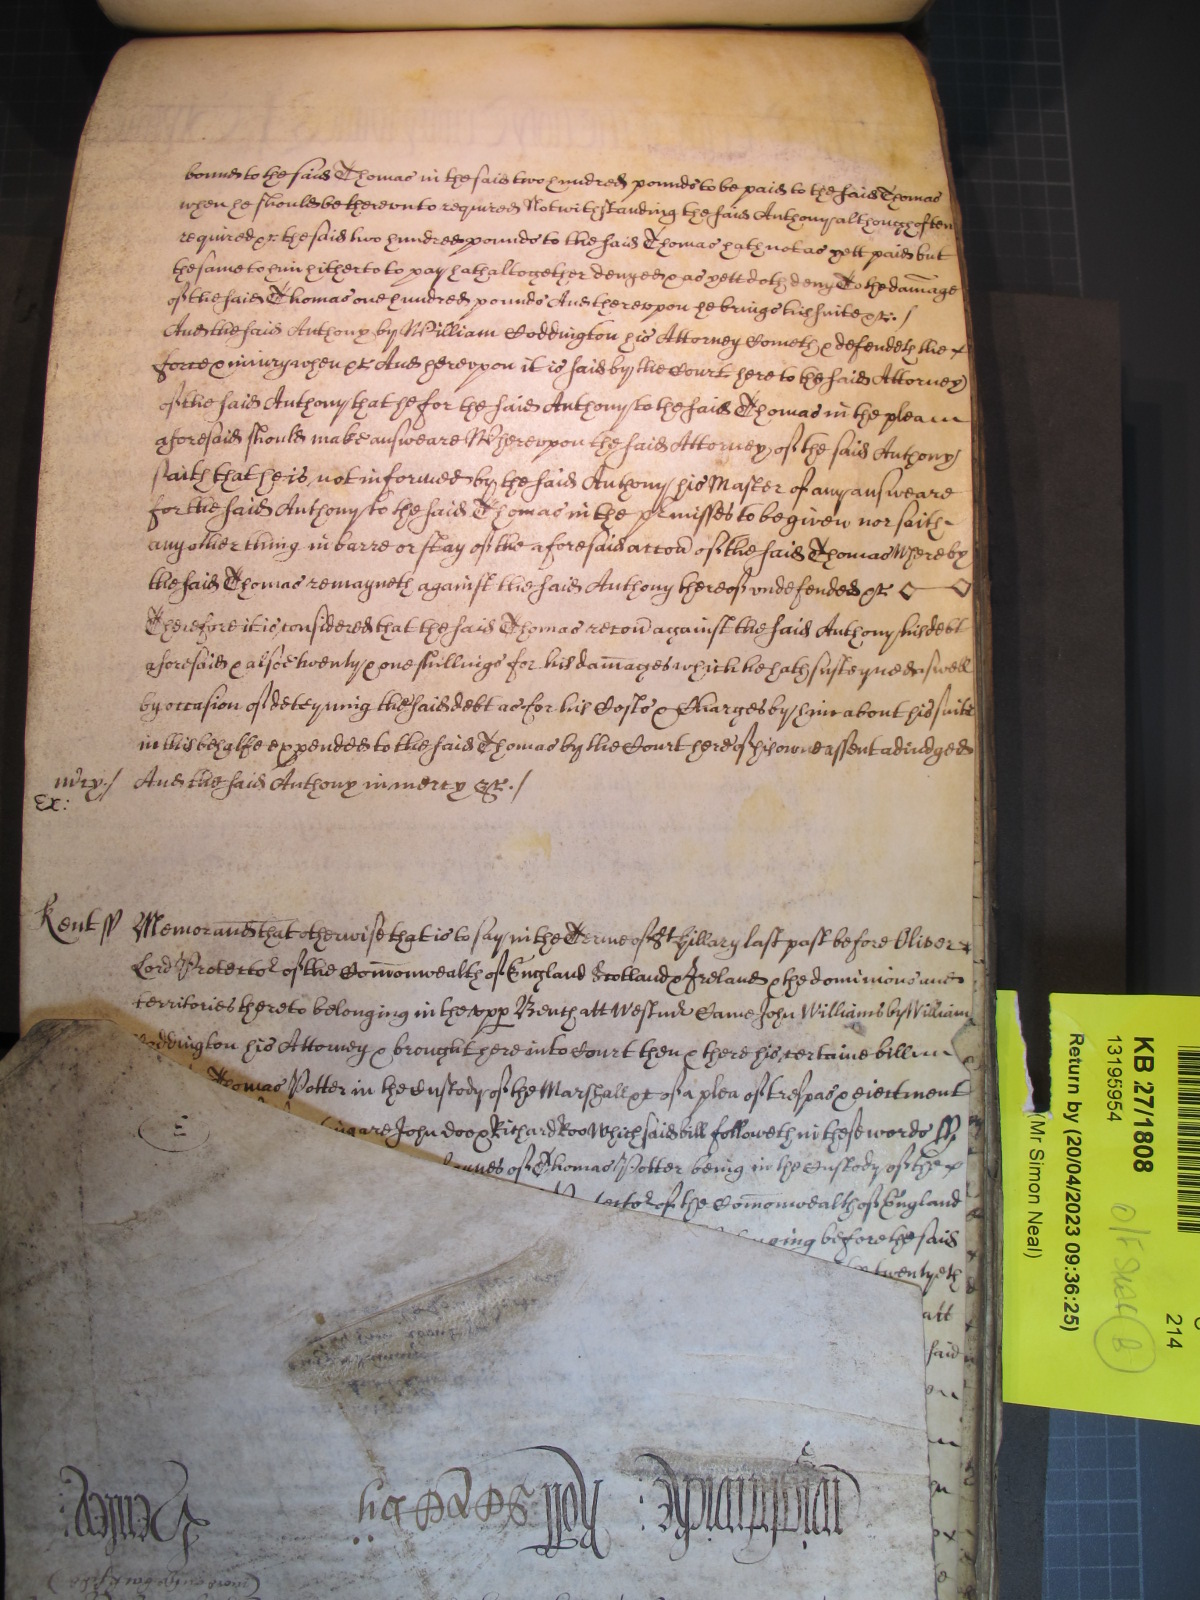 bound to the said Thomas in the said two hundred pounds to be paid to the said Thomas
when he should be thereunto required Notwithstanding the said Anthony although often
required &c. the said two hundred pounds to the said Thomas hath not as yett paid but
the same to him hitherto to pay hath altogether denyed & as yett doth deny To the damage
of the said Thomas one hundred pounds And thereupon he brings his suite &c. /
And the said Anthony by William Coddington his Attorney Cometh & defendeth the
force & iniury when &c And hereupon it is said by the Court here to the said Attorney
of the said Anthony that he for the said Anthony to the said Thomas in the plea
aforesaid should make answeare Whereupon the said Attorney of the said Anthony
saith that he is not informed by the said Anthony his Master of any answeare
for the said Anthony to the said Thomas in the prmisses to be given nor saith
any other thing in barre or stay of the aforesaid accon of the said Thomas Whereby
the said Thomas remayneth against the said Anthony thereof undefended &c
Therefore it is considered that the said Thomas recou against the said Anthony his debt
aforesaid & alsoe twenty & one shillings for his damages which he hath susteyned aswell
by occasion of deteyning the said debt as for his Costs & Charges by him about his suite
in this behalfe expended to the said Thomas by the Court here of his owne assent adiudged
mrcy / And the said Anthony in mercy &c. /
Ex:
Kent ss Memorand that otherwise that is to say in the Terme of St Hillary last past before Oliver
Lord Protector of the Comonwealth of England Scotland & Ireland & the dominions and
territories thereto belonging in the upp Bench att Westmr Came John Williams by William
Coddington his Attorney & brought here into Court then & there his certaine bill
Thomas Potter in the Custody of the Marshall &c of a plea of trespas & eiectment
John Doe & Richard Roo Which said bill followeth in these words ss
of Thomas Potter being in the Custody of the
of the Comonwealth of England
before the said
twentyeth
att
said
KB 27/1808
13195954
Return by (20/04/2023 09:36:25)
(Mr Simon Neal)
214
Roll